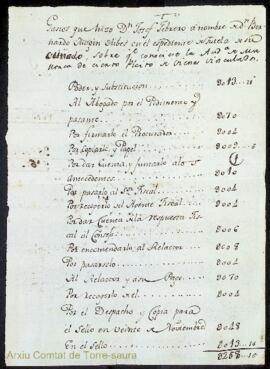 Gastos que hizo Dn. Josef Febrero a nombre de Dn. Ber
nardo
en el expediente
sobre qe. conocio la Auda. de
de cierto Pleito de vienes vinculados.
Poder, y Substitucion 2013..11
Al Abogado por el Pedimento y
pasante 2070
Por firmarlo el Procurador 2004
Por Copiarle y Papel 2003
Por dar Cuenta, y juntarlo a los
antecedentes 2010
Por pasarlo al Sr. Fiscal 2004
Por recogerlo del Agente Fiscal 2004
Por dar Cuenta de la respuesta Fis
cal al Consejo 2006
Por encomendarlo al Relator 2008
Por pasarselo 2004
Al Relator y a su Page 2070
Por recogerlo de el 2004
Por el Despacho y Copia para
el Sello en Veinte de Noviembre 2048
En el Sello 2013..10
2268..10
Arxiu Comtat de Torre-saura